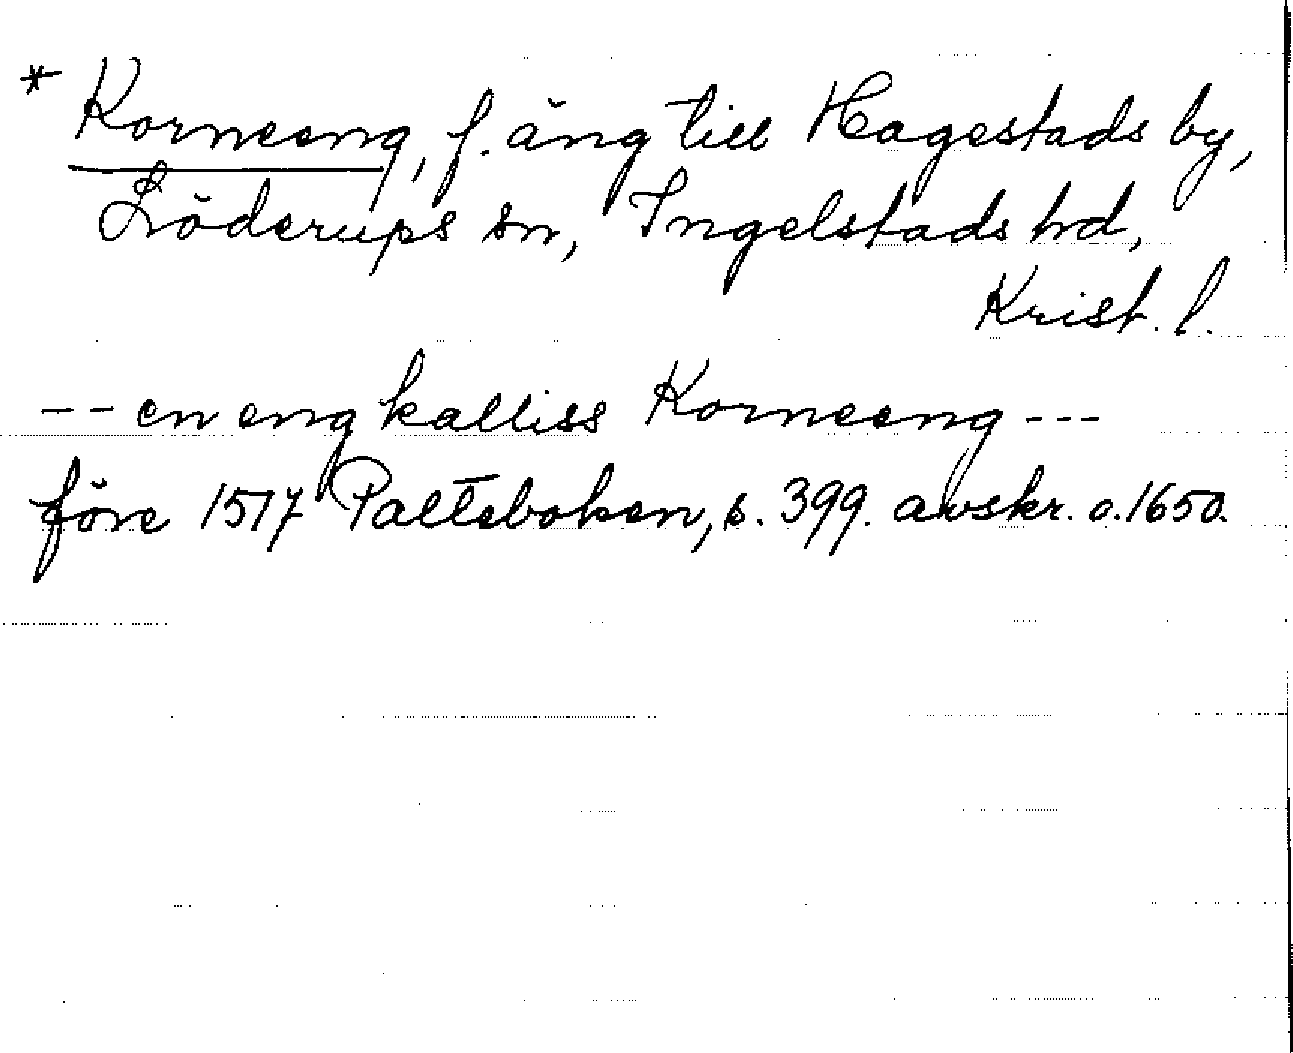 * Korneeng, f. äng till Hagestads by,
Löderups sn, Ingelstads hd,
Krist. l.
-- en eng kalliss Korneeng ---
före 1517 Palteboken, s. 399. avskr. o. 1650.